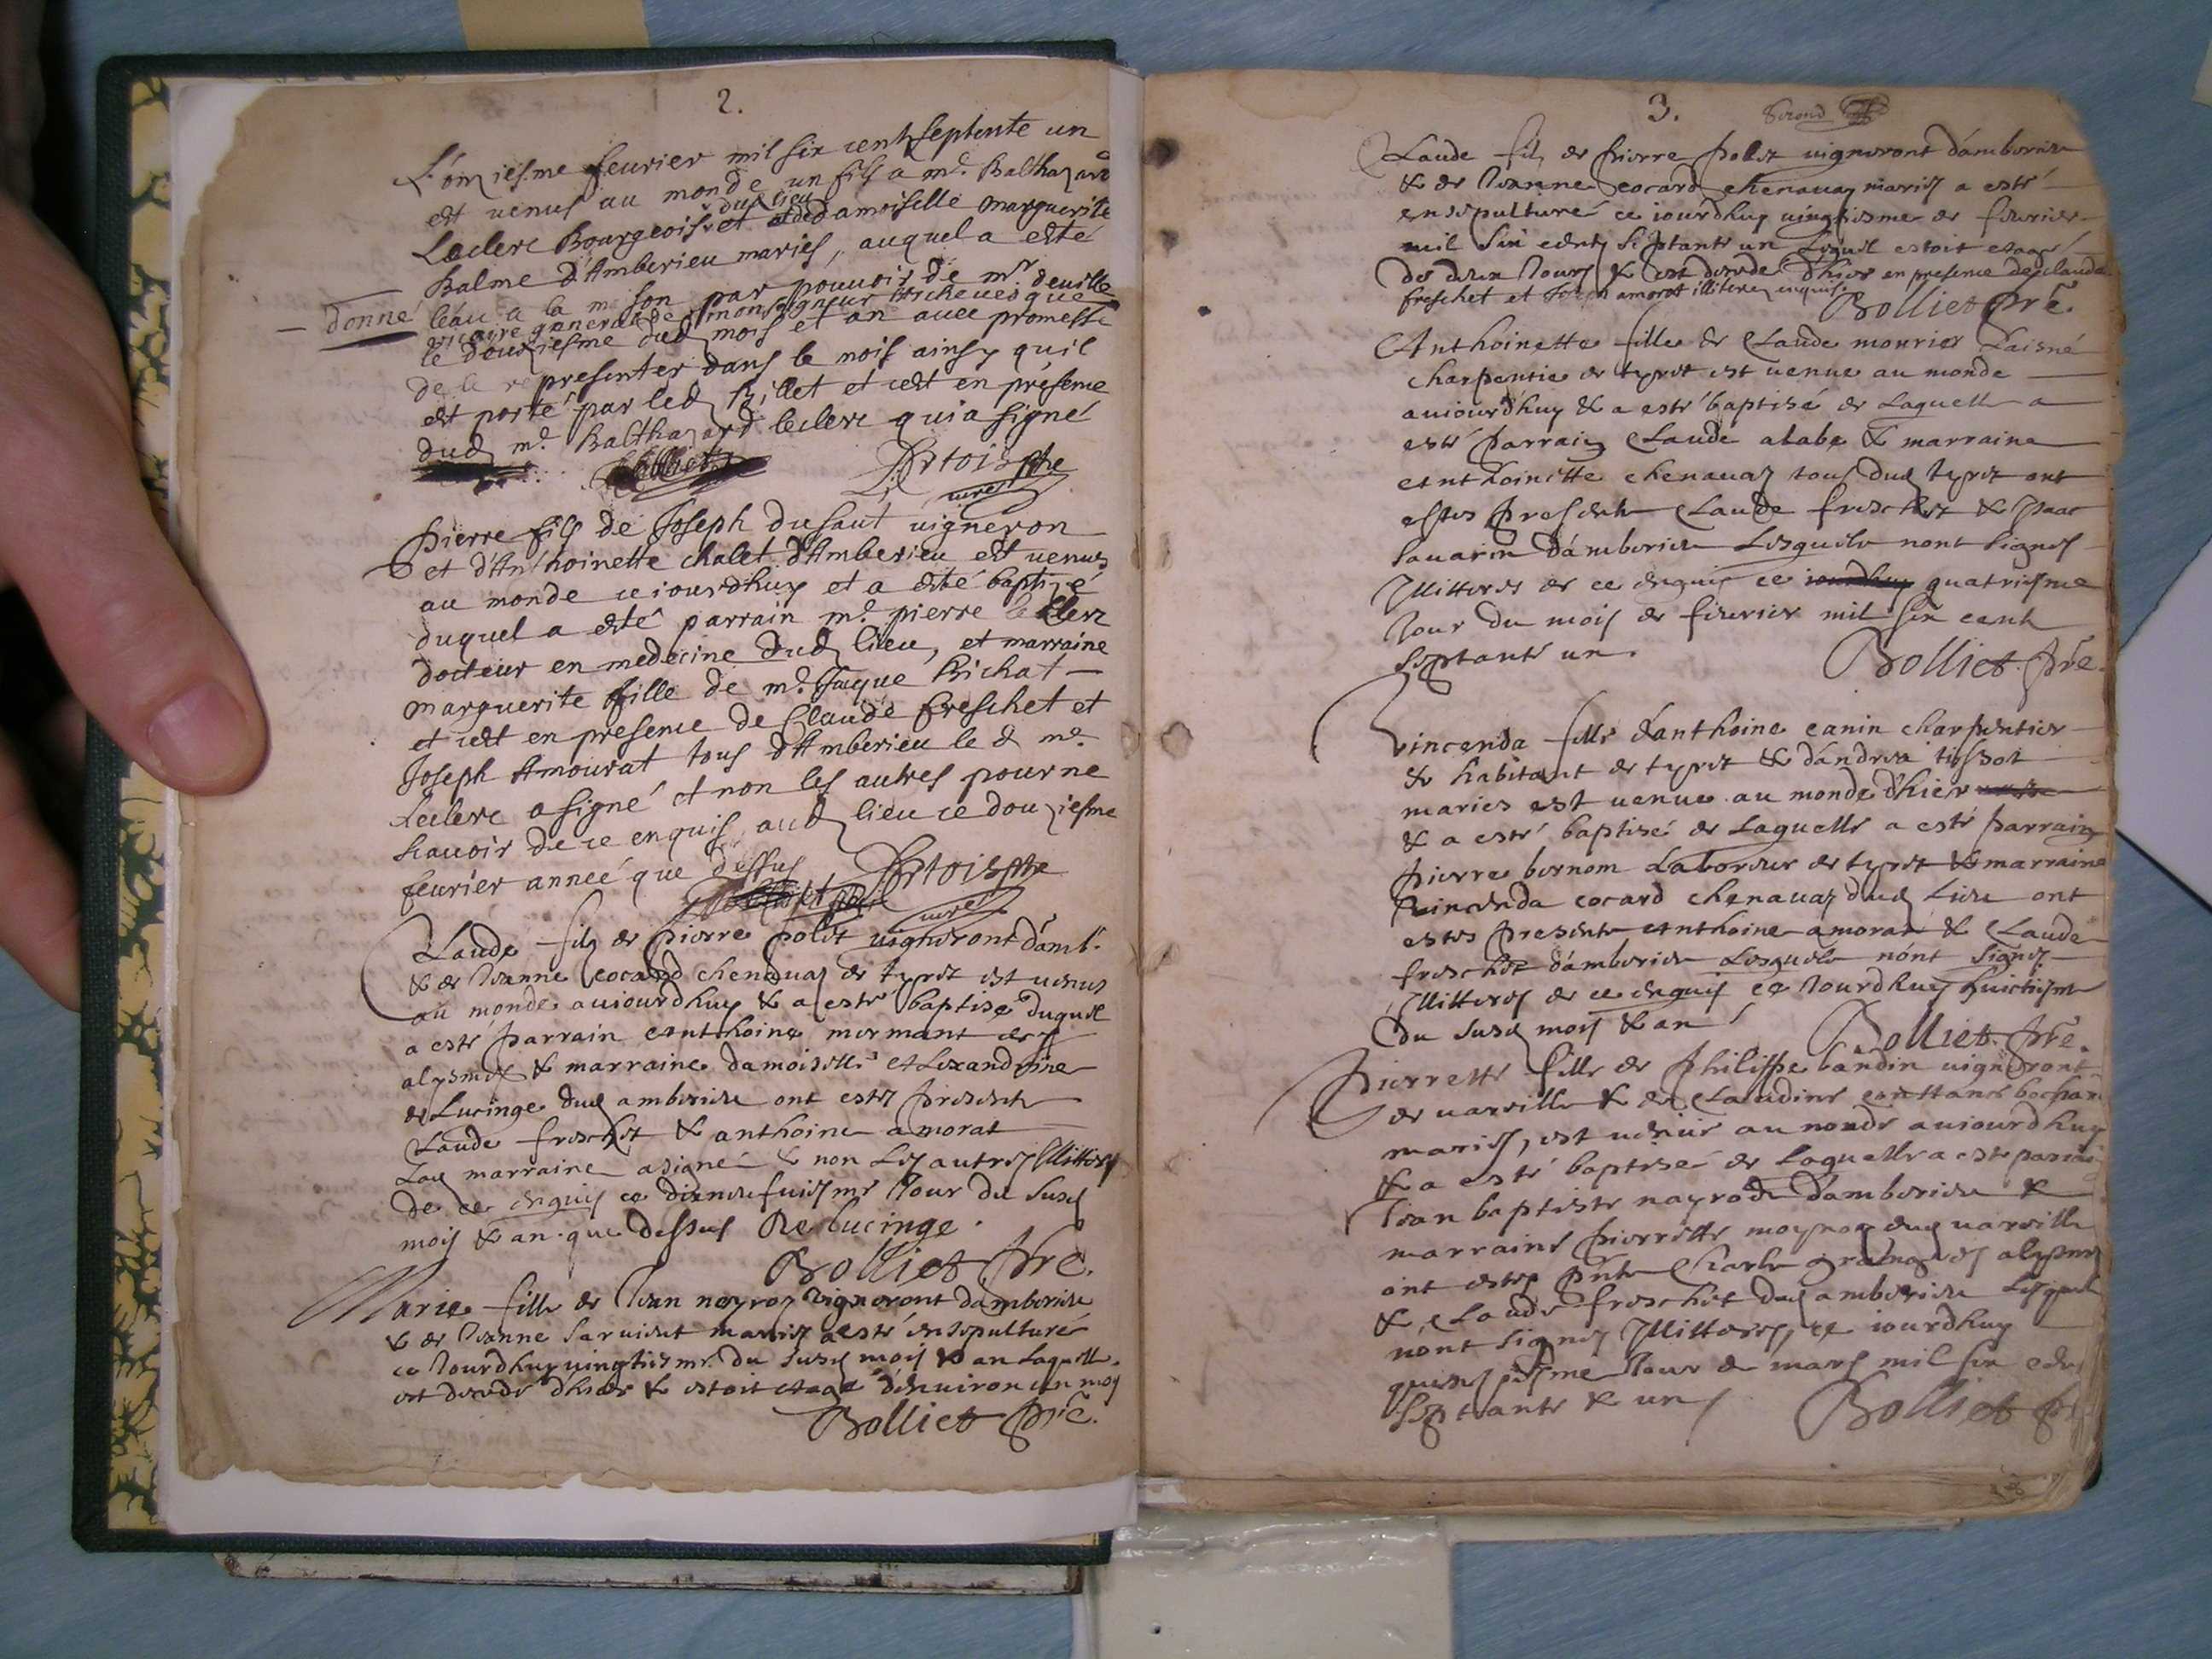 2.
L'onziesme feurier mil six cent septente un
est venus au monde un fils a mr. Balthazard
Leclerc Bourgeois dud lieu et de damoiselle marguerite
Balme d'Amberieu mariés, auquel a esté
donné l'eau a la maison par pouuoir de mr. deuille
vicaire general de monseigneur Archeuesque
le douziesme dud mois et an auec promesse
de le representer dans le mois ainsy quil
est porté par led billet et cest en presence
dud mr. Balthazard leclerc qui a signé
Artois ptre
curé
Pierre fils de Joseph dusaut vigneron
et d'Anthoinette chalet d'Amberieu est venus
au monde ce iourdhuy et a esté baptizé
duquel a esté parrain mr. pierre le Clerc
docteur en medecine dud lieu, et marraine
marguerite fille de mr. Jaque Richat
et cest en presence de Claude freschet et
Joseph Amourat tous d'Amberieu le d mr.
Leclerc a signé et non les autres pour ne
scauoir de ce enquis aud lieu ce douziesme
feurier anneé que dessus
Artois ptre
curé
Claude fils de pierre polet vigneront d'amb.
& de Jeanne cocard chenauaz de tyret est venus
au monde auiourdhuy & a esté baptisé duquel
a esté parrain anthoine mermant de
& marraine damoiselle Alexandrine
de Lucinge dud amberieu ont estes presents
Claude freschet & anthoine amorat
Lad marraine a signé & non les autres Illitteres
de ce enquis ce jour du susd
mois & an que dessus De Lucinge.
Bolliet ptre.
Marie fille de Jean neyroz vigneront damberieu
& de Jeanne saruient mariez a esté ensepulturé
ce Jourdhuy vingtiesme du susd mois & an Laquelle
est decede d'hier & estoit eagé d'enuiron un moy
Bolliet ptre.
3.
Second
Claude fils de pierre polet vigneront d'amberieu
& de Jeanne cocard chenauaz mariés a esté
ensepulturé ce iourdhuy vingtiesme de feurier
mil six cents septante un Lequel estoit eagé
de deux Jours & est decede d'hier en presence de claude
freschet et Joseph amorat illiteres enquis
Bolliet ptre.
Anthoinette fille de Claude mourier Laisné
charpentie de tyret est venue au monde
auiourdhuy & a esté baptisé de Laquelle a
esté parrain Claude alabe & marraine
anthoinette chenauaz tous dud tyret ont
estes presents Claude freschet & Isaac
sauarin d'amberieu Lesquels nont signes
Illitteres de ce enquis ce iourdhuy quatriesme
Jour du mois de feurier mil six cent
septante un.
Bolliet ptre.
Vincenda fille d'anthoine canin charpentier
& habitant de tyret & d'andrea tissot
maries est venue au monde d'hier
& a esté baptisé de Laquelle a esté parrain
pierre bernom Laboreur de tyret & marraine
Vincenda cocard chenauaz dud Lieu ont
estes presents anthoine amorat & Claude
freschet d'amberieu Lesquels nont signez
Illitteres de ce enquis ce Jourdhuy huictiesme
du susd mois & an
Bolliet ptre.
Pierrette fille de philippe baudin vigneront
de uareille & de Claudine constance bochard
maries, est venue au monde auiourdhuy
& a esté baptisé de Laquelle a esté parrain
Jean baptiste nayrod d'amberieu &
marraine pierrette moynoz dud uareille
ont estes pnts Charle
& Claude freschet dud amberieu Lesquels
nont signes Illitteres, ce iourdhuy
Jour de mars mil six cent
septante & un
Bolliet